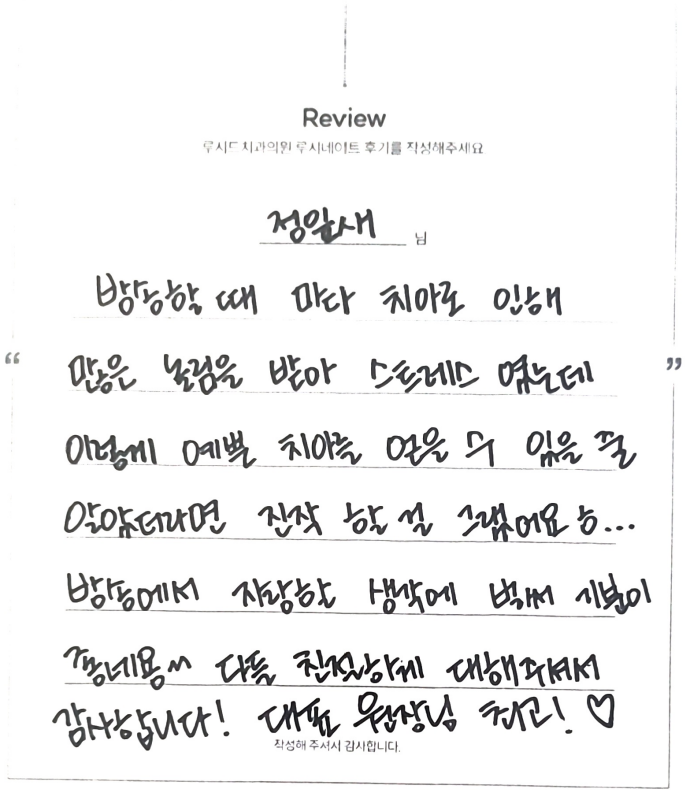 Review
루시드치과의원 루시네이트 후기를 작성해주세요
정일새 님
방송할 때 마다 치아로 인해
“ 많은 놀림을 받아 스트레스 였는데 ”
이렇게 예쁜 치아를 얻을 수 있을 줄
알았더라면 진작 할 걸 그랬어요 ㅎ...
방송에서 자랑할 생각에 벌써 기분이
좋네용^^ 다들 친절하게 대해주셔서
감사합니다! 대표 원장님 최고! ♡
작성해 주셔서 감사합니다.